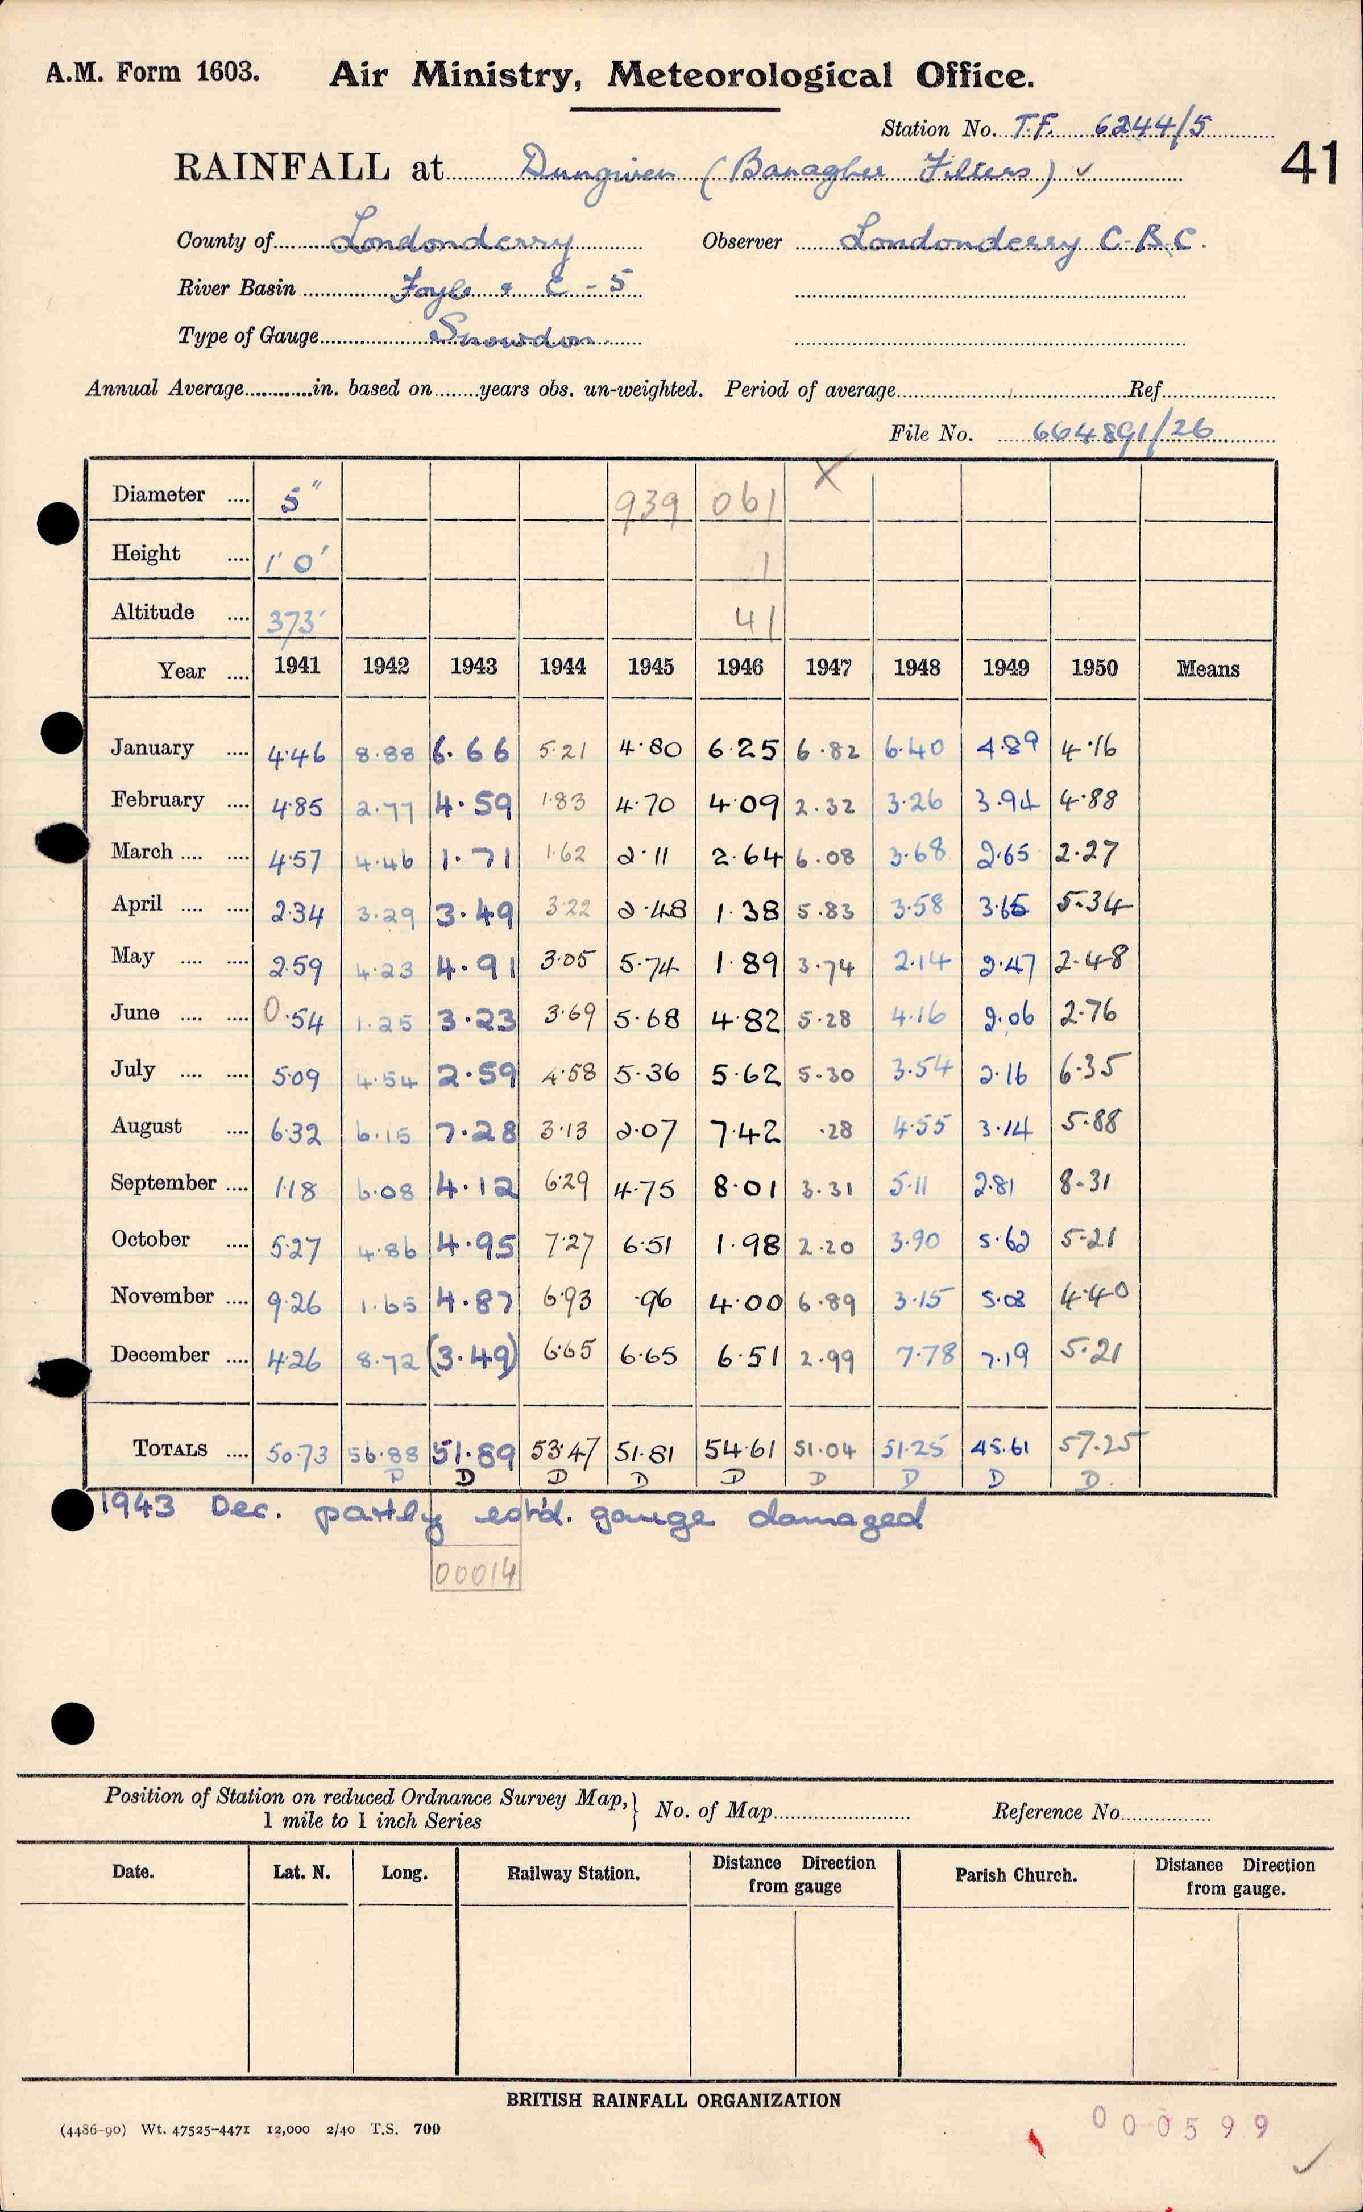 A.M. Form 1603. Air Ministry, Meteorological Office.
Station No. T.F. 6244/5
41
RAINFALL at Dungiven (Banagher Filters) ✓
County of Londonderry Observer Londonderry C.B.C.
River Basin Foyle & C - 5
Type of Gauge Snowdon
Annual Average............in. based on........years obs. un-weighted. Period of average.................... Ref....................
File No. 664891/26
Diameter .... 5" 939 061 X
Height .... 1' 0" 1
Altitude .... 373' 41
Year .... 1941 1942 1943 1944 1945 1946 1947 1948 1949 1950 Means
January .... 4.46 8.88 6.66 5.21 4.80 6.25 6.82 6.40 4.89 4.16
February .... 4.85 2.77 4.59 1.83 4.70 4.09 2.32 3.26 3.94 4.88
March .... .... 4.57 4.46 1.71 1.62 2.11 2.64 6.08 3.68 2.65 2.27
April .... .... 2.34 3.29 3.49 3.22 2.48 1.38 5.83 3.58 3.65 5.34
May .... .... 2.59 4.23 4.91 3.05 5.74 1.89 3.74 2.14 2.47 2.48
June .... .... 0.54 1.25 3.23 3.69 5.68 4.82 5.28 4.16 2.06 2.76
July .... .... 5.09 4.54 2.59 4.58 5.36 5.62 5.30 3.54 2.16 6.35
August .... 6.32 6.15 7.28 3.13 2.07 7.42 .28 4.55 3.14 5.88
September .... 1.18 6.08 4.12 6.29 4.75 8.01 3.31 5.11 2.81 8.31
October .... 5.27 4.86 4.95 7.27 6.51 1.98 2.20 3.90 5.62 5.21
November .... 9.26 1.65 4.87 6.93 .96 4.00 6.89 3.15 5.03 4.40
December .... 4.26 8.72 (3.49) 6.65 6.65 6.51 2.99 7.78 7.19 5.21
TOTALS .... 50.73 56.88 51.89 53.47 51.81 54.61 51.04 51.25 45.61 57.25
D D D D D D D D D.
1943 Dec. partly est'd. gauge damaged
00014
Position of Station on reduced Ordnance Survey Map, 1 mile to 1 inch Series } No. of Map.................... Reference No....................
Date. Lat. N. Long. Railway Station. Distance Direction from gauge Parish Church. Distance Direction from gauge.
BRITISH RAINFALL ORGANIZATION
(4486-90) Wt. 47525-4471 12,000 2/40 T.S. 700
000599
✓